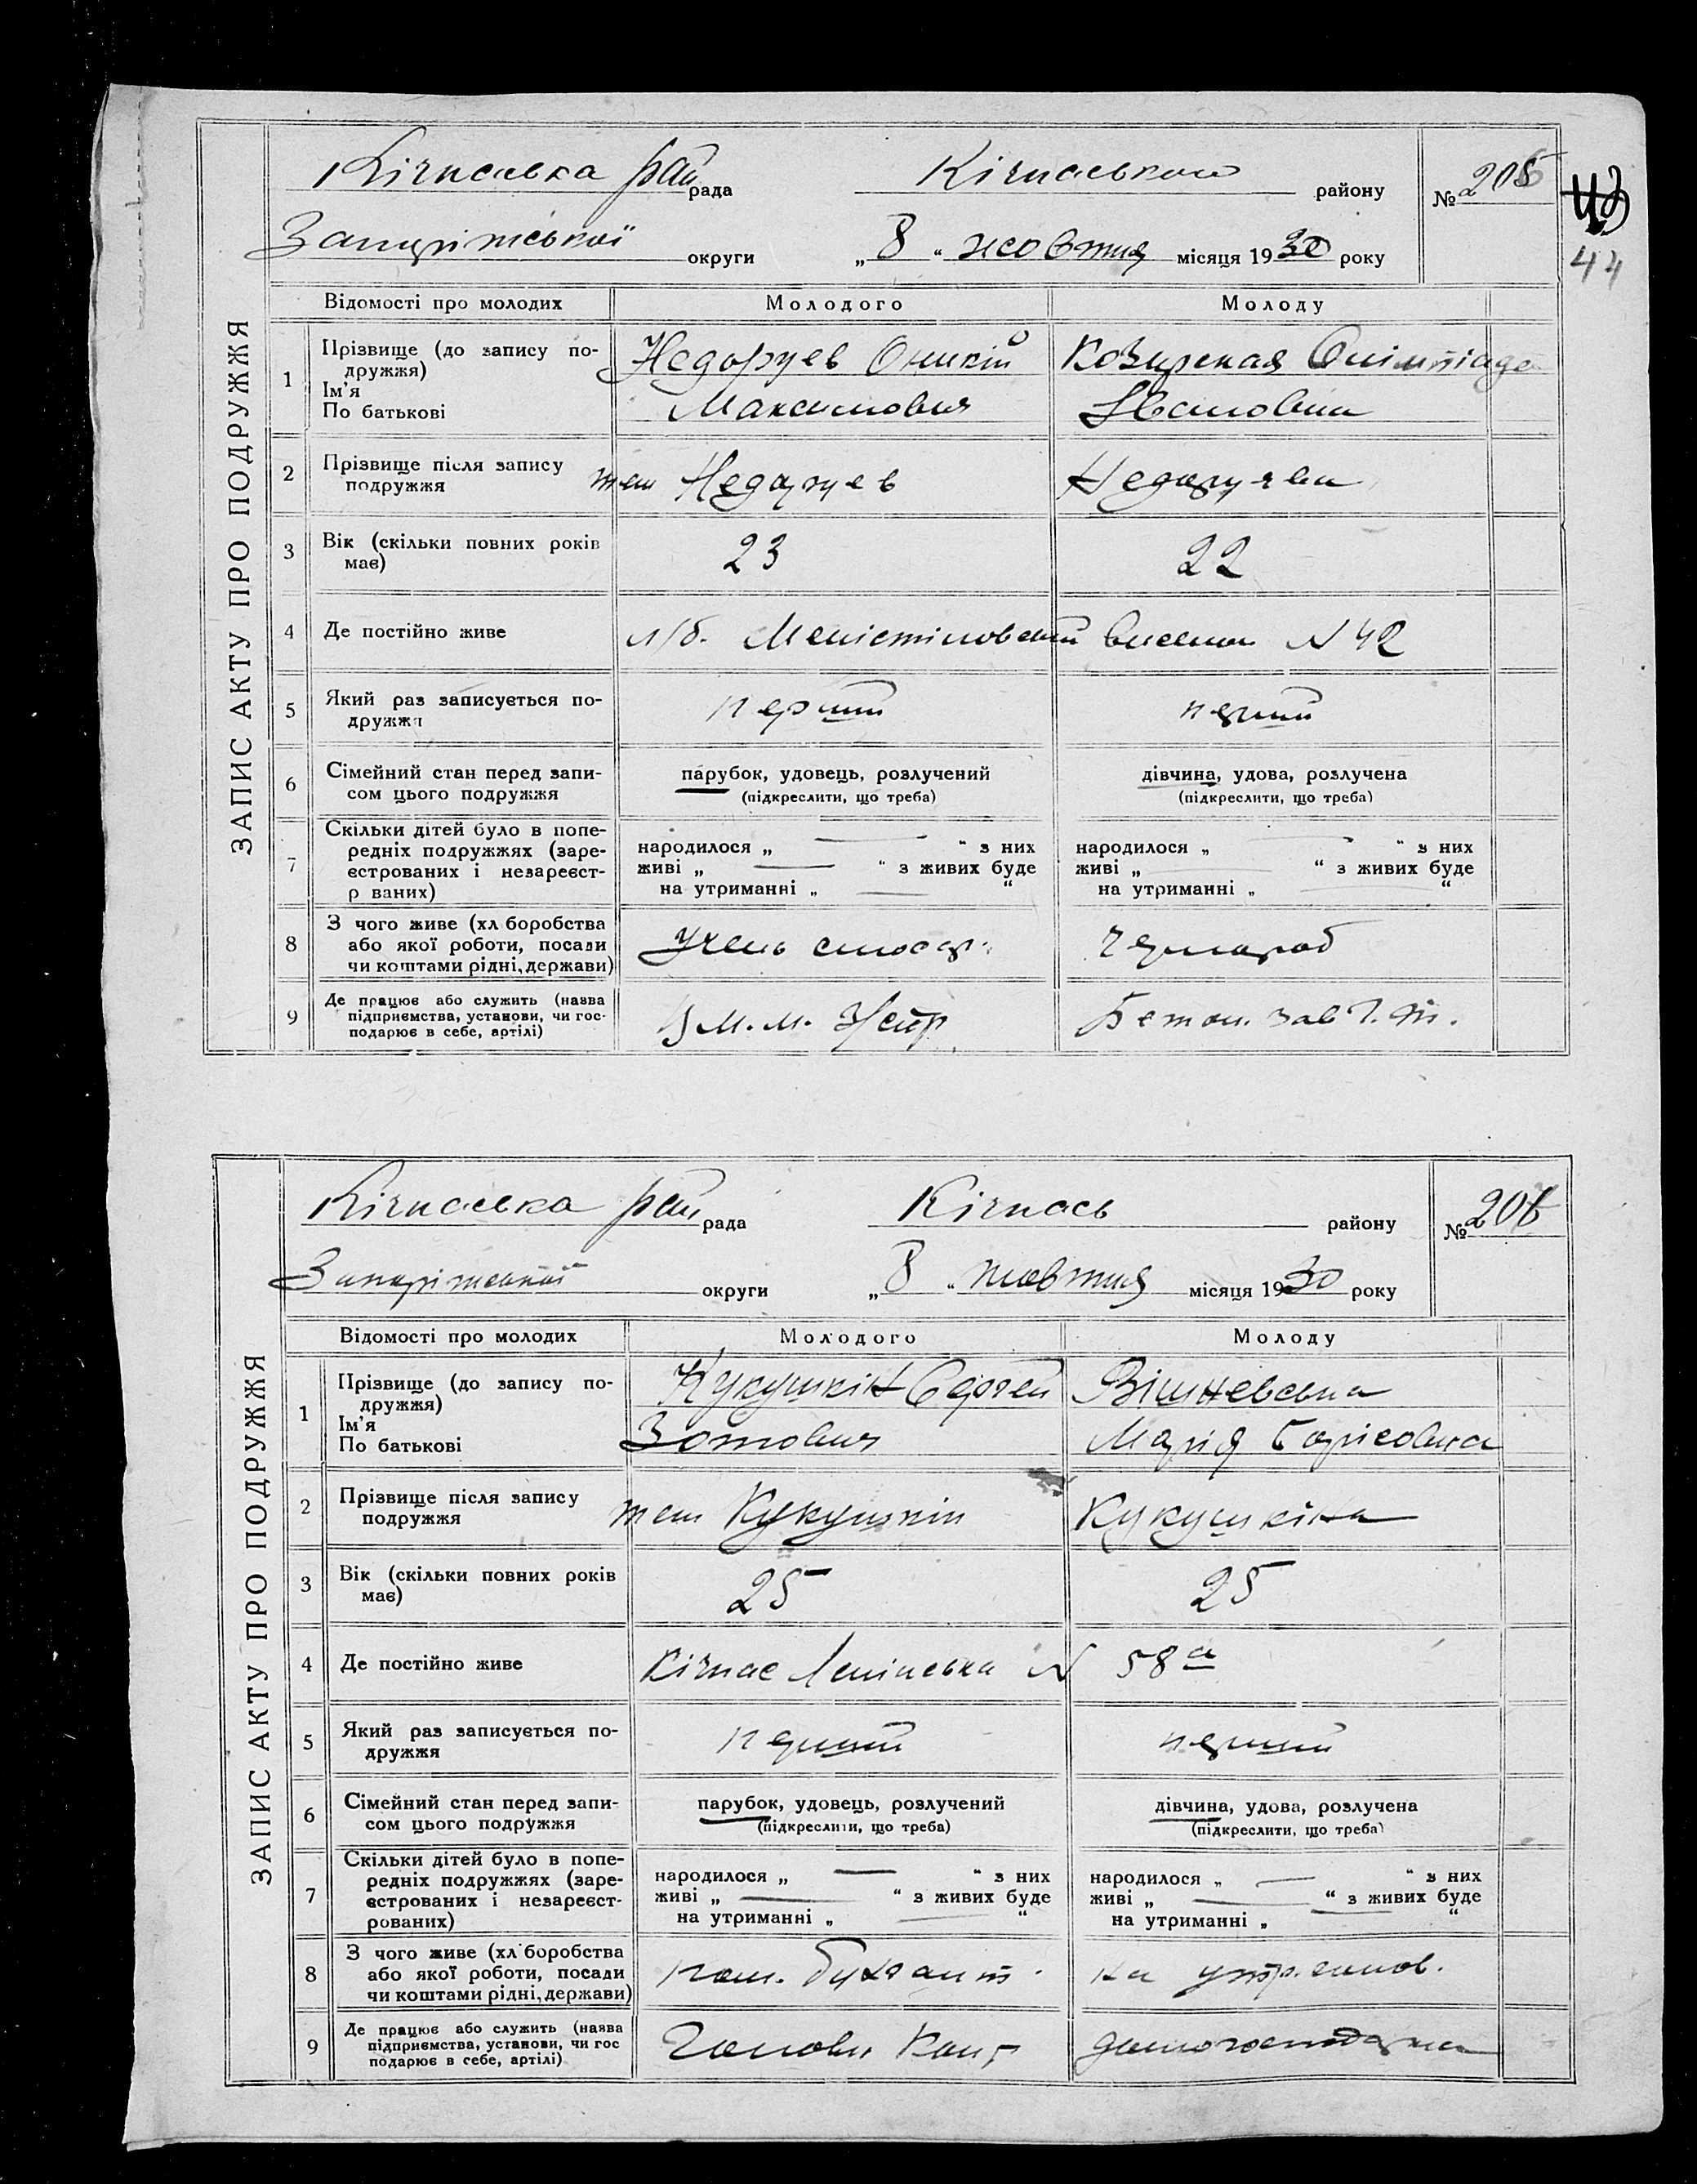 ЗАПИС АКТУ ПРО ПОДРУЖЖЯ
Кічкаська рай рада Кічкаського району № 205
Запоріжської округи „8“ жовтня місяця 1930 року
44
Відомості про молодих Молодого Молоду
1 Прізвище (до запису подружжя) Недоруев Оникій Козирская Олімпіада
Ім'я
По батькові Максимович Івановна
2 Прізвище після запису подружжя теж Недоруев Недоруева
3 Вік (скільки повних років має) 23 22
4 Де постійно живе л/б. виселок N 42
5 Який раз записується подружжя перший перший
6 Сімейний стан перед записом цього подружжя парубок, удовець, розлучений дівчина, удова, розлучена
(підкреслити, що треба) (підкреслити, що треба)
7 Скільки дітей було в попередніх подружжях (зареєстрованих і незареєстр ваних) народилося „ — “ з них народилося „ — “ з них
живі „ — “ з живих буде живі „ — “ з живих буде
на утриманні „ — “ на утриманні „ — “
8 З чого живе (хл боробства або якої роботи, посади чи коштами рідні, держави) Учень слюсар. чорнороб
9 Де працює або служить (назва підприємства, установи, чи господарює в себе, артілі) Бетон. зав
ЗАПИС АКТУ ПРО ПОДРУЖЖЯ
Кічкаська рай рада Кічкась району № 206
Запоріжської округи „8“ жовтня місяця 1930 року
Відомості про молодих Молодого Молоду
1 Прізвище (до запису подружжя) Кукушкін Сергей Вішневська
Ім'я
По батькові Зотович Марія Борісовна
2 Прізвище після запису подружжя теж Кукушкін Кукушкіна
3 Вік (скільки повних років має) 25 25
4 Де постійно живе Кічкас Ленінська N 58 а
5 Який раз записується подружжя перший перший
6 Сімейний стан перед записом цього подружжя парубок, удовець, розлучений дівчина, удова, розлучена
(підкреслити, що треба) (підкреслити, що треба)
7 Скільки дітей було в попередніх подружжях (зареєстрованих і незареєстрованих) народилося „ — “ з них народилося „ — “ з них
живі „ — “ з живих буде живі „ — “ з живих буде
на утриманні „ — “ на утриманні „ — “
8 З чого живе (хл боробства або якої роботи, посади чи коштами рідні, держави) пом. бухгалт. на утр. чолов.
9 Де працює або служить (назва підприємства, установи, чи гос подарює в себе, артілі) Головн Конт домогосподарка